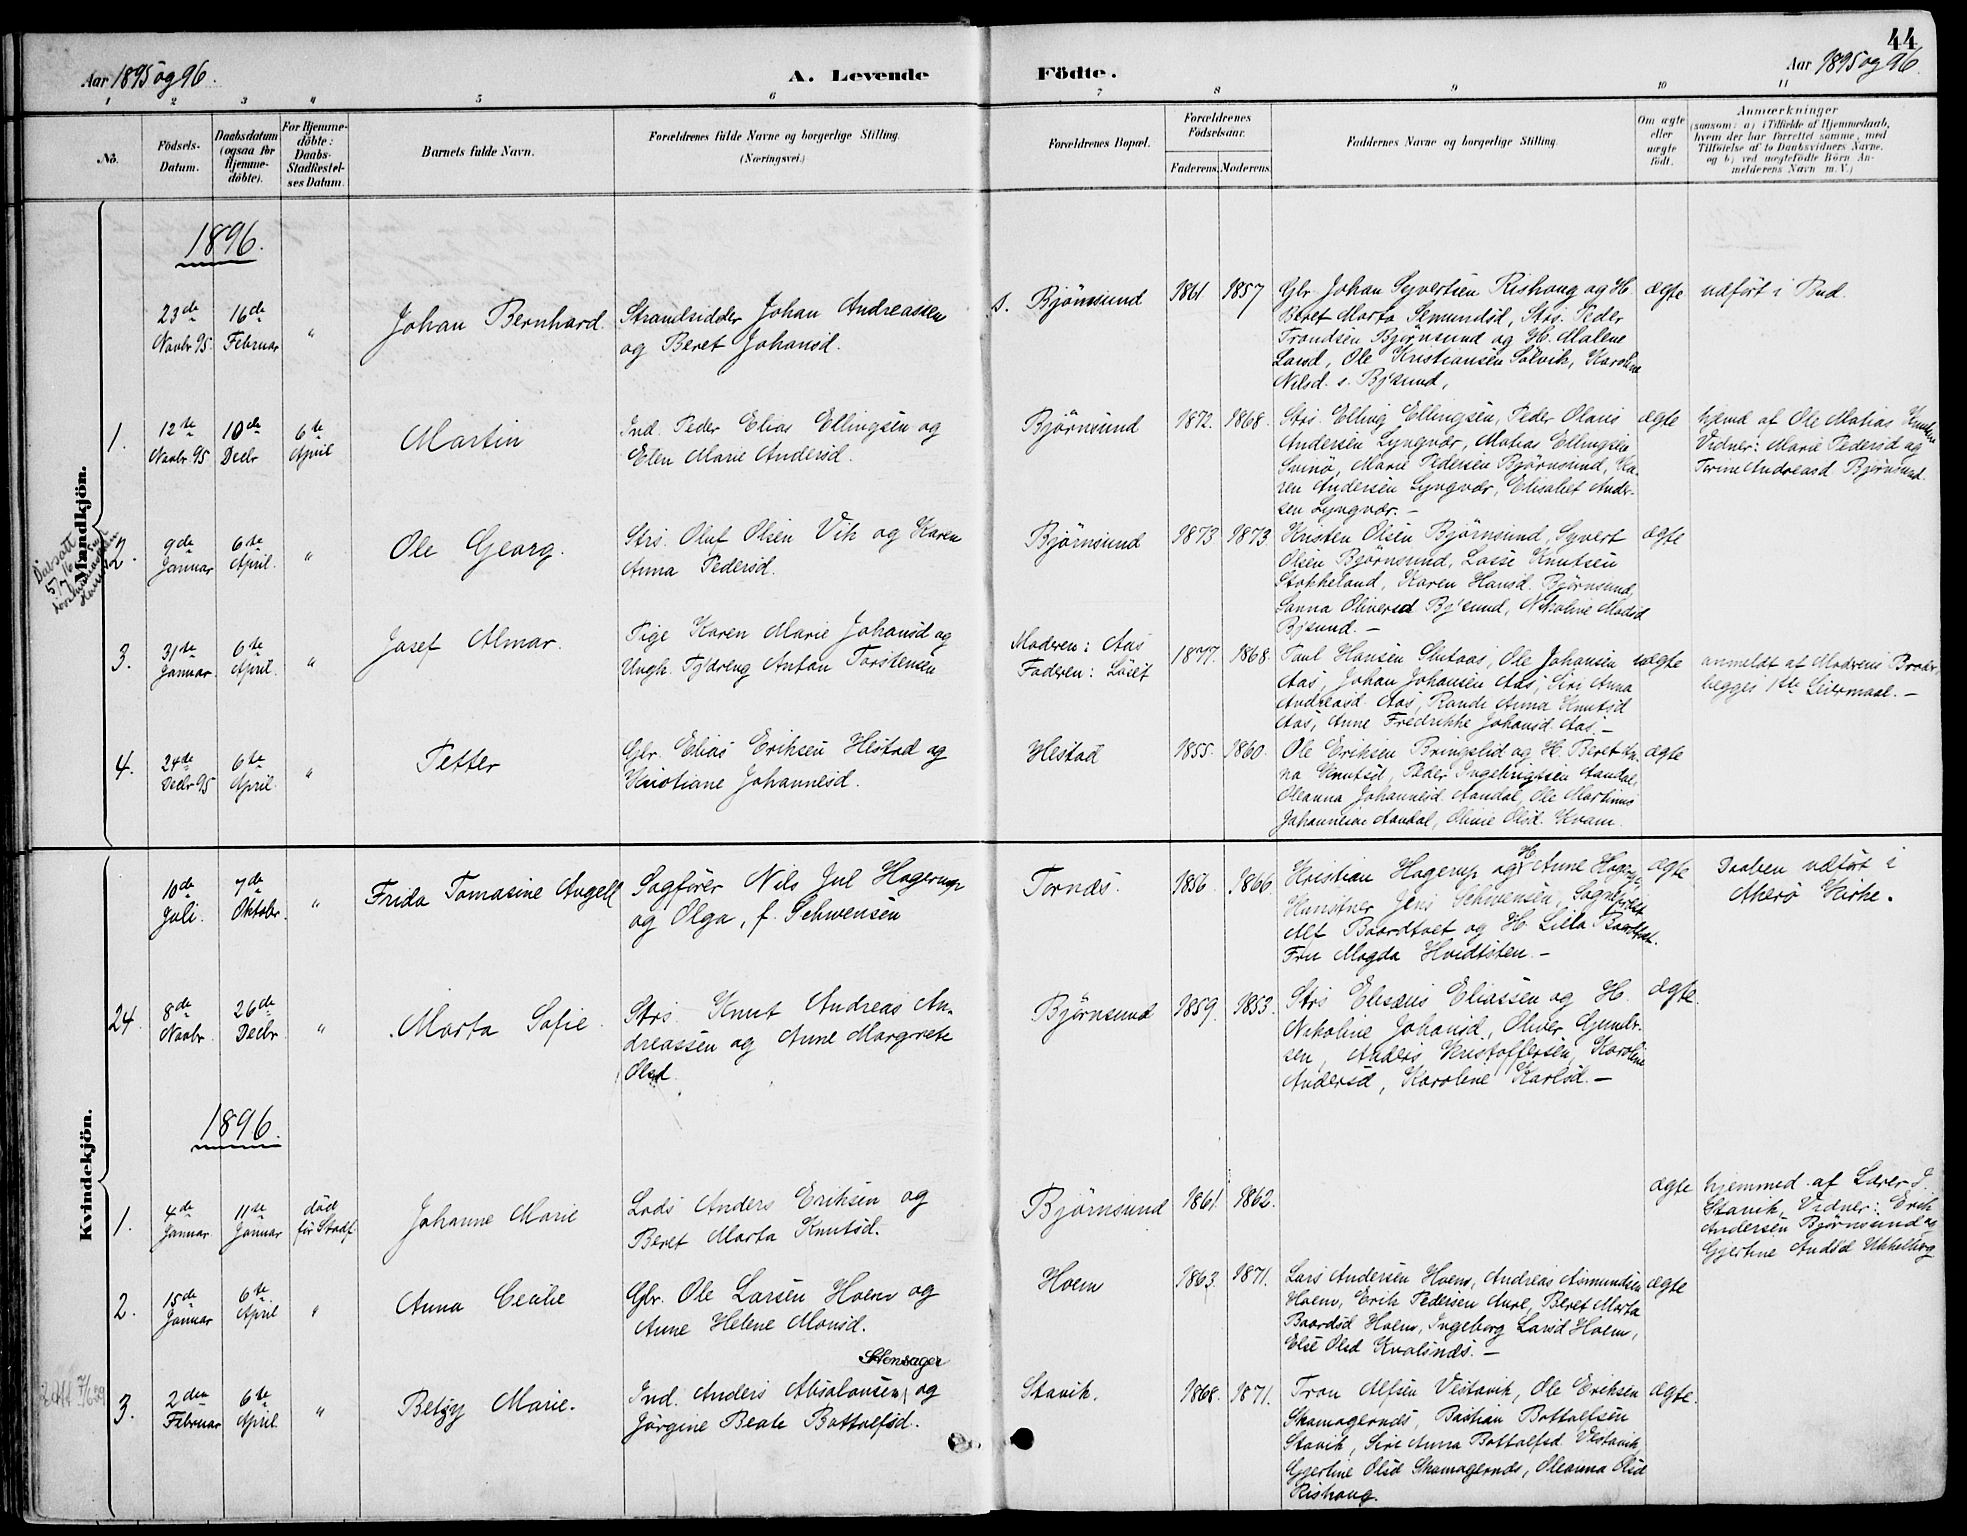 44
Aar 1895 og 96.
A. Levende
Födte.
Aar 1895 og 96.
1 2 3 4 5 6 7 8 9 10 11
No.
Födsels-
Datum.
Daabsdatum
(ogsaa for
Hjemme-
döbte).
For Hjemme-
döbte:
Daabs-
Stadfæstel-
ses Datum.
Barnets fulde Navn.
Forældrenes fulde Navne og borgerlige Stilling
(Næringsvei.)
Forældrenes Bopæl.
Forældrenes
Födselsaar.
Faderens. Moderens.
Faddernes Navne og borgerlige Stilling
Om ægte
eller
uægte
födt.
Anmærkninger
(saasom: a) i Tilfælde af Hjemmedaab,
hvem der har forrettet samme, med
Tilföielse af to Daabsvidners Navne,
og b) ved uægtefödte Börn An-
melderens Navn m. V.)
Mandkjön.
1896.
23de
Novbr 95.
16de
Februar
"
Johan Bernhard.
Strandsidder Johan Andreassen
og Beret Johansd.
s. Bjørnsund
1861. 1857
Gbr. Johan Syvertsen Rishaug og H.
Beret Marta Semundsd, Strs. Peder
Trondsen Bjørnsund og H. Malene
Larsd, Ole Kristiansen Sølvik, Karoline
Nilsd. s. Bj'sund,
ægte
udført i Bud.
1.
12te
Novbr 95
10de
Decbr
6te
April
Martin
Ind. Peder Elias Ellingsen og
Elen Marie Andersd.
Bjørnsund
1872. 1868.
Strs. Elling Ellingsen, Peder Olaus
Andersen Lyngvær, Matias Ellingsen
Marie Pedersen Bjørnsund, Ka-
ren Andersen Lyngvær, Elisabet Ander-
sen Lyngvær. –
ægte
hjemd af Ole Matias Knutsen
Vidner: Marie Pedersd og
Andreasd Bjørnsund.
2.
9de
Januar
6te
April.
"
Ole Georg.
Strs. Oluf Olsen Vik og Karen
Anna Pedersd.
Bjørnsund
1873 1873.
Kristen Olsen Bjørnsund, Syvert
Olsen Bjørnsund, Lasse Knutsen
Stokkeland, Karen Hansd. Bjørnsund,
Sanna Oliversd Bj'sund, Nikoline Madsd
Bj'sund. –
ægte
3.
31te
Januar
6te
April.
"
Josef Almar.
Pige Karen Marie Johansd og
Ungk. Tj'dreng Anton Torstensen
Moderen: Aas
Faderen: Løset
1877. 1868.
Paul Hansen Slutaas, Ole Johansen
Aas, Johan Johansen Aas, Siri Anna
Andreasd Aas, Randi Anna Knutsd
Aas, Anne Fredrikke Johansd Aas. –
uægte
anmeldt af Moderens Broder,
begges 1ste Leiermaal. –
4.
24de
Decbr 95
6te
April.
"
Petter
Gbr. Elias Eriksen Hestad og
Kristiane Johannesd.
Hestad
1855. 1860.
Ole Eriksen Bringslid og H. Beret An-
na Knutsd, Peder Ingebrigtsen Aandal,
Oleanna Johannesd. Aandal, Ole Martinus
Johannesen Aandal, Olivie Olsd. Kvam.
ægte
Kvindekjön.
10de
Juli.
7de
Oktobr.
"
Frida Tomasine Angell
Sagfører Nils Jul Hagerup
og Olga, f. Schwensen
Tornæs.
1856. 1866.
Kristian Hagerup og H. Anne Hagerup,
Kunstner Jens Schwensen, Sogneprest
Alf Baardtvet og H. Lilla Baardtvet.
Fru Magda Hvidtsten. –
ægte
Daaben udført i
Akerø Kirke.
24.
8de
Novbr.
26de
Decbr.
"
Marta Sofie.
Strs. Knut Andreas An-
dreassen og Anne Margrete
Olsd.
Bjørnsund
1859. 1853.
Strs Elisæus Eliassen og H.
Nikoline Johansd, Oliver Gunder-
sen, Anders Kristoffersen, Karoline
Andersd, Karoline Karlsd. –
ægte.
1896.
1.
4de
Januar.
11te
Januar
død
før Stadf.
Johanne Marie
Lods Anders Eriksen og
Beret Marta Knutsd.
Bjørnsund
1861. 1862.
ægte
hjemmed. af Lærer I.
Stavik, Vidner: Erik
Andersen Bjørnsund og
Gjertine Andsd Ukkelberg
2.
15de
Januar
6te
April
"
Anna Cecilie
Gbr. Ole Larsen Hoem og
Anne Helene Monsd.
Hoem
1863. 1871.
Lars Andersen Hoem, Andreas Asmundsen
Hoem, Erik Pedersen Aure, Beret Marta
Baardsd Hoem, Ingeborg Larsd Hoem,
Else Olsd Kvalsnæs. –
ægte
3.
2den
Februar
6te
April.
"
Betzy Marie.
Stensager
Ind. Anders Absalonsen og
Jørgine Beate Bottolfsd.
Stavik.
1868. 1871.
Tron Alfsen Vestavik, Ole Eriksen
Skamagernæs, Bastian Bottolfsen
Stavik, Siri Anna Bottolfsd. Vestavik,
Gjertine Olsd Skamagernæs, Oleanna Olsd
Rishaug.
ægte.